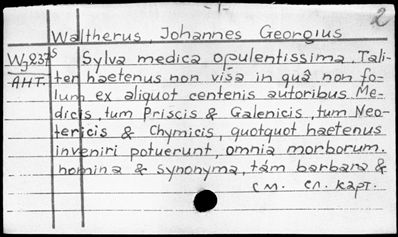 -1-
2
Waltherus, Johannes Georgius
Wg237s Sylva medica opulentissima, Tali-
AHT. ter haetenus non visa in quâ non fo-
lum ex aliquot centenis autoribus Me-
dicis, tum Priscis & Galenicis, tum Neo-
tericis & Chymicis, quotquot haetenus
inveniri potuerunt, omnia morborum.
nomina & synonyma, tàm barbara &
см. сл. карт.